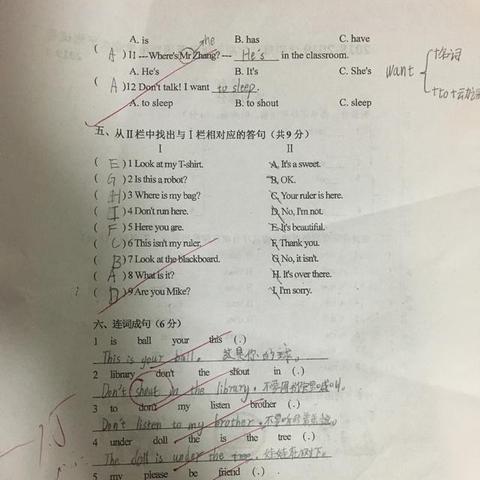 A. is B. has C. have
he
( A ) 11 ---Where's Mr Zhang? --- He's in the classroom.
A. He's B. It's C. She's
want
+名词
( A ) 12 Don't talk! I want to sleep.
A. to sleep B. to shout C. sleep
五、从Ⅱ栏中找出与Ⅰ栏相对应的答句(共9分)
Ⅰ Ⅱ
( E ) 1 Look at my T-shirt. A. It's a sweet.
( G ) 2 Is this a robot? B. OK.
( H ) 3 Where is my bag? C. Your ruler is here.
( I ) 4 Don't run here. D. No, I'm not.
( F ) 5 Here you are. E. It's beautiful.
( C ) 6 This isn't my ruler. F. Thank you.
( B ) 7 Look at the blackboard. G. No, it isn't.
( A ) 8 What is it? H. It's over there.
( D ) 9 Are you Mike? I. I'm sorry.
六、连词成句(6分)
1 is ball your this (.)
This is your ball. 这是你的球。
2 library don't the shout in (.)
Don't shout in the library.
3 to don't my listen brother (.)
Don't listen to my brother.
4 under doll the is the tree (.)
The doll is under the tree.
5 my please be friend (.)